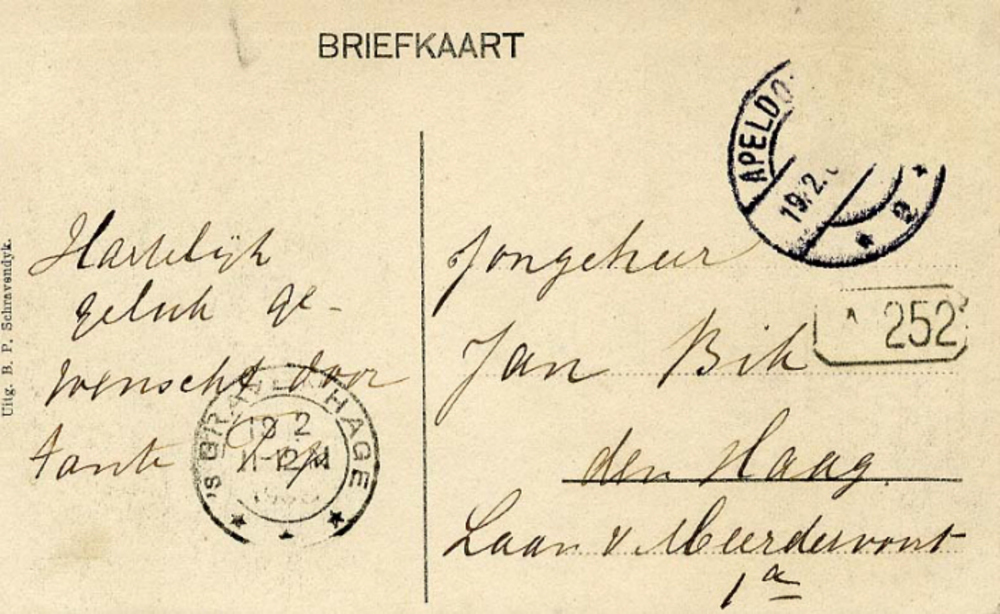 BRIEFKAART
APELDO
19.2.
2
Hartelijk
geluk ge-
wenscht door
tante
Jongeheer
Jan Bik
den Haag.
Laan v Meerdervoort
1a
252
'S GRAVENHAGE
19 2
11-12 M
Uitg. B. P. Schravendyk.